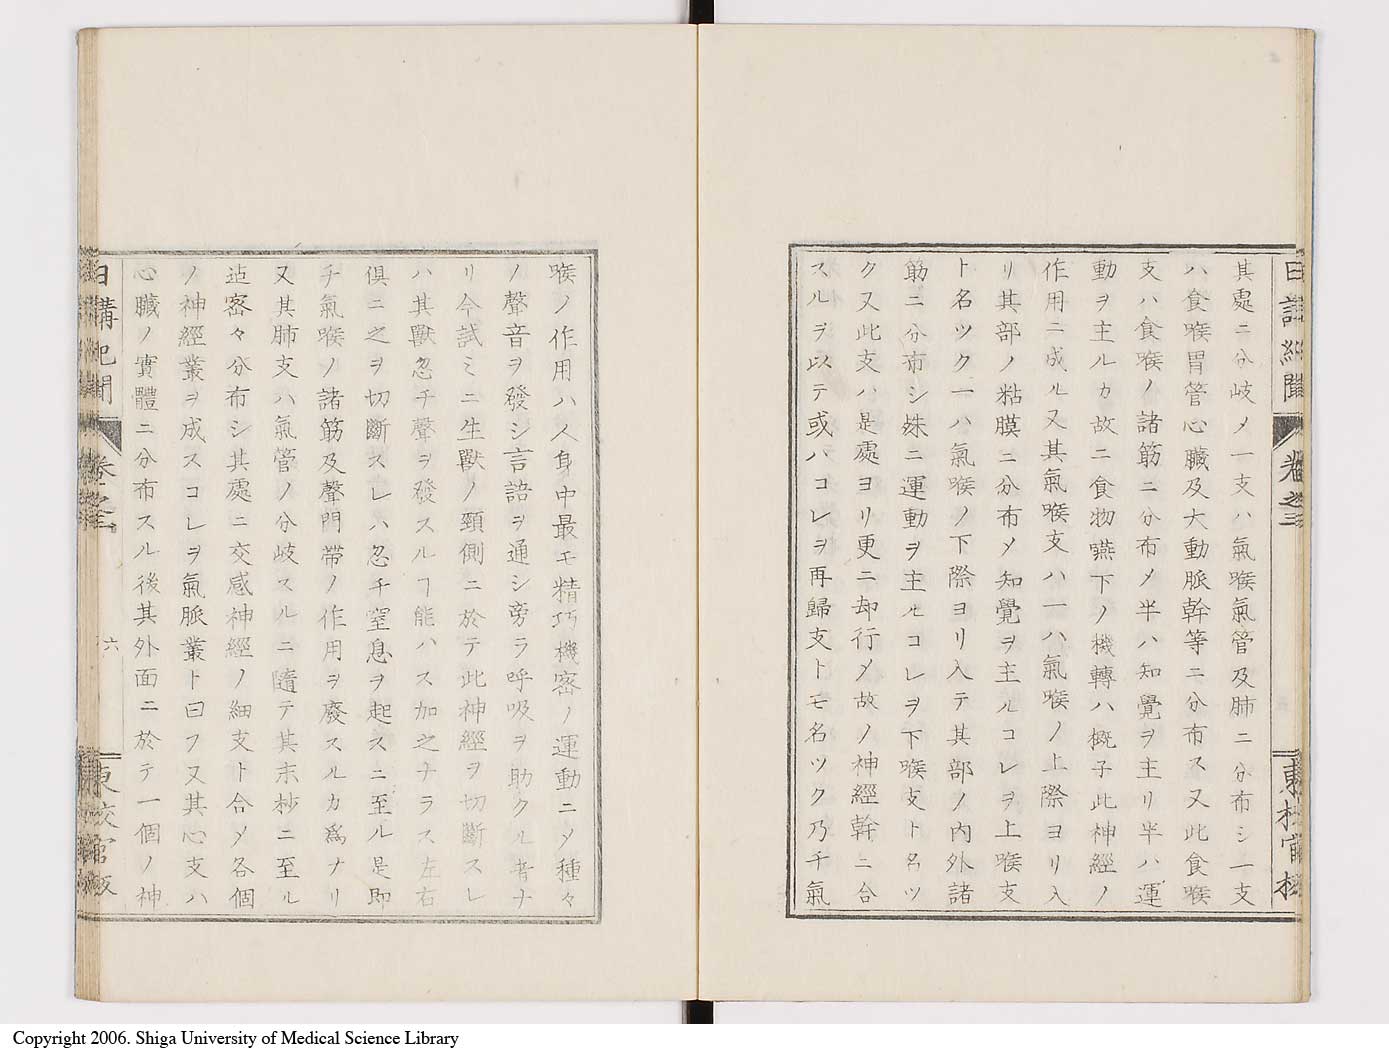 其處ニ分岐メ一支ハ氣喉氣管及肺ニ分布シ一支
ハ食喉胃管心臓及大動脈幹等ニ分布ス又此食喉
支ハ食喉ノ諸筋ニ分布メ半ハ知覺ヲ主リ半ハ運
動ヲ主ルカ故ニ食物嚥下ノ機轉ハ概子此神經ノ
作用ニ成ル又其氣喉支ハ一ハ氣喉ノ上際ヨリ入
リ其部ノ粘膜ニ分布メ知覺ヲ主ルコレヲ上喉支
ト名ツク一ハ氣喉ノ下際ヨリ入テ其部ノ内外諸
筋ニ分布シ殊ニ運動ヲ主ルコレヲ下喉支ト名ツ
ク又此支ハ是處ヨリ更ニ却行メ故ノ神經幹ニ合
スルヲ以テ或ハコレヲ再歸支トモ名ツク乃チ氣
喉ノ作用ハ人身中最モ精巧機密ノ運動ニメ種々
ノ聲音ヲ發シ言語ヲ通シ旁ラ呼吸ヲ助クル者ナ
リ今試ミニ生獸ノ頸側ニ於テ此神經ヲ切斷スレ
ハ其獸忽チ聲ヲ發スルヿ能ハス加之ナラス左右
倶ニ之ヲ切斷スレハ忽チ窒息ヲ起スニ至ル是即
チ氣喉ノ諸筋及聲門帶ノ作用ヲ廢スルカ爲ナリ
又其肺支ハ氣管ノ分岐スルニ隨テ其末杪ニ至ル
迠密々分布シ其處ニ交感神經ノ細支ト合メ各個
ノ神經叢ヲ成スコレヲ氣脈叢ト曰フ又其心支ハ
心臓ノ實體ニ分布スル後其外面ニ於テ一個ノ神
日講紀聞 卷之三 六 東校官版
Copyright 2006. Shiga University of Medical Science Library